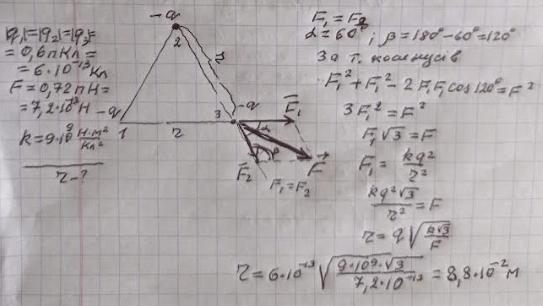 |q₁|=|q₂|=|q₃|=
= 0,6 пКл =
= 6·10⁻¹³ Кл
F = 0,72 пН =
= 7,2·10⁻¹³ Н
k = 9·10⁹ Н·м²/Кл²
r - ?
-q
2
r
-q
1
r
3
-q
F⃗₁
α
β
F⃗₂
F⃗
F₁ = F₂
F₁ = F₂
α = 60°; β = 180° - 60° = 120°
За т. косинусів
F₁² + F₁² - 2F₁F₁cos120° = F²
3F₁² = F²
F₁√3 = F
F₁ = kq²/r²
kq²√3/r² = F
r = q√(k√3/F)
r = 6·10⁻¹³ √(9·10⁹·√3/7,2·10⁻¹³) = 8,8·10⁻² м